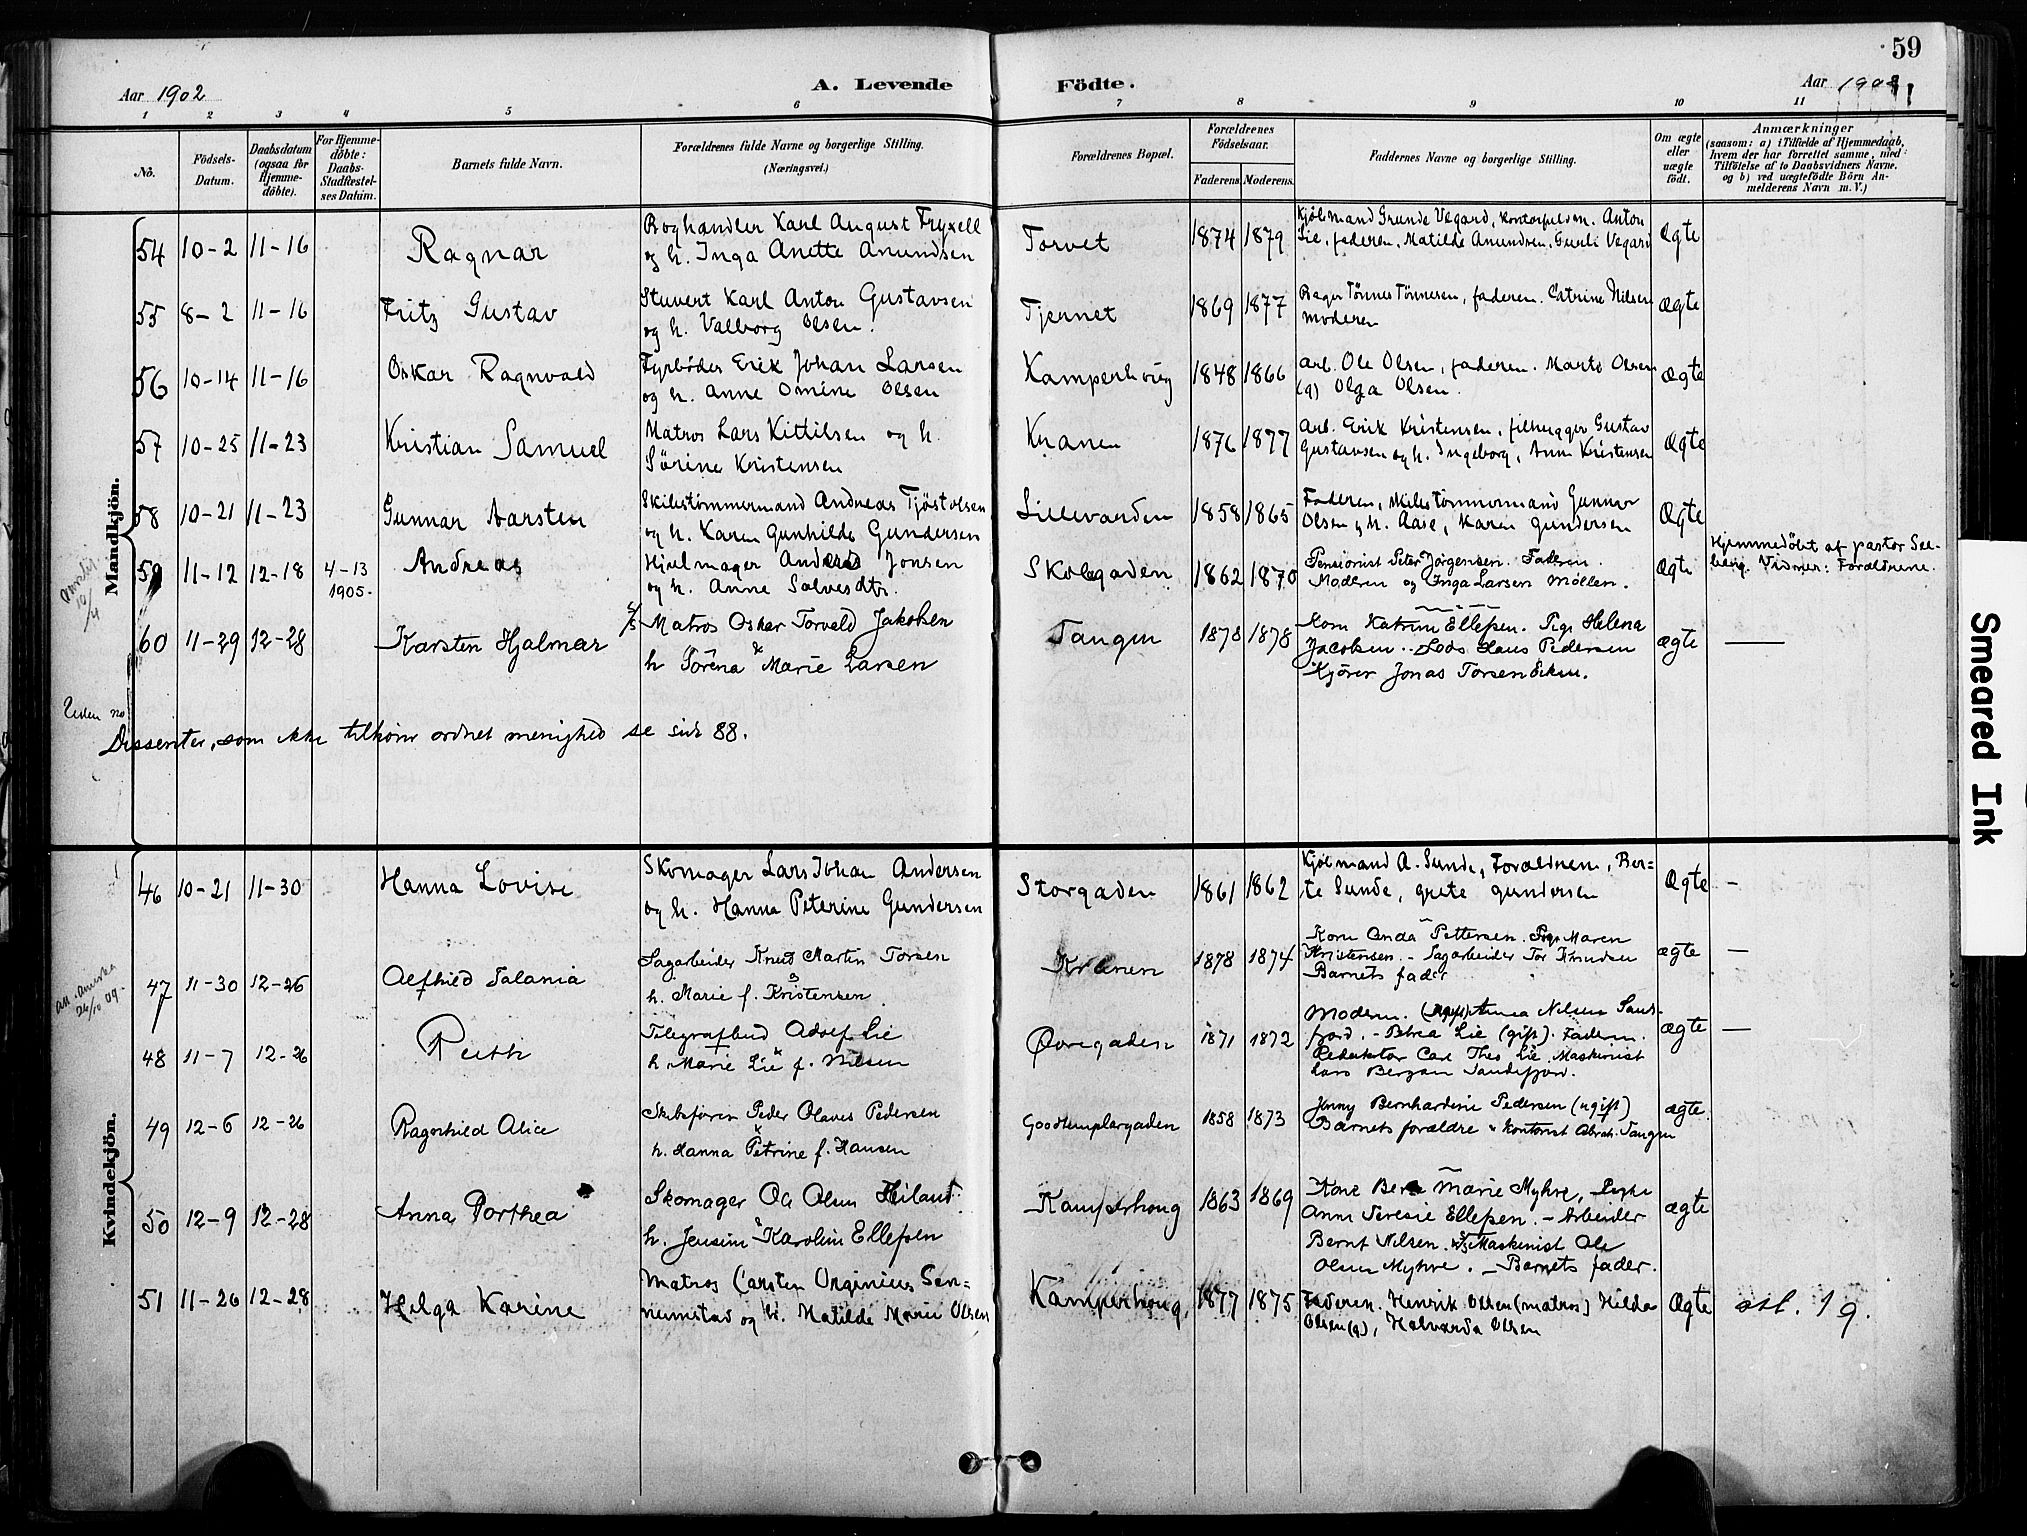 59
Aar 1902
A. Levende Födte.
Aar
1 2 3 4 5 6 7 8 9 10 11
No.
Födsels-Datum.
Daabsdatum (ogsaa for Hjemme-döbte).
For Hjemme-döbte: Daabs-Stadfæstel-ses Datum.
Barnets fulde Navn.
Forældrenes fulde Navne og borgerlige Stilling. (Næringsvei.)
Forældrenes Bopæl.
Forældrenes Födselsaar.
Faderens. Moderens.
Faddernes Navne og borgerlige Stilling.
Om ægte eller uægte födt.
Anmærkninger
(saasom: a) i Tilfælde af Hjemmedaab,
hvem der har forrettet samme, med
Tilföielse af to Daabsvidners Navne.
og b) ved uægtefödte Börn An-
melderens Navn m. V.)
Mandkjön.
54 10-2 11-16 Ragnar
Karl August Fryxell
og h. Inga Anette Amundsen
Torvet 1874 1879
Kjølmand Grunde Vegard, Anton
Lie, faderen, Matilde Amundsen, Vegard
Ægte
55 8-2 11-16 Fritz Gustav
Stuvert Karl Anton Gustavsen
og h. Valborg Olsen.
Tjennet 1869 1877
Bager Tønnes Tønnesen, faderen. Catrine Nilsen
moderen
Ægte
56 10-14 11-16 Oskar Ragnvald
Fyrbøder Erik Johan Larsen
og h. Anne Omine Olsen
Kamperhoug 1848 1866
Arb. Ole Olsen, faderen. Marte Olsen
(g) Olga Olsen.
Ægte
57 10-25 11-23 Kristian Samuel
Matros Lars Kittilsen og h.
Sørine Kristensen
Kranen 1876 1877
Arb. Erik Kristensen, filhugger Gustav
Gustavsen og h. Ingeborg, Anne Kristensen
Ægte
58 10-21 11-23 Gunnar Aarsten
Skibstømmermand Andreas Tjøstolsen
og h. Karen Gunhilde Gundersen
Lillevarden 1858 1865
Faderen, skibstømmermand Gunnar
Olsen og h. Aase, Karen Gundersen
Ægte
59 11-12 12-18 4-13 1905. Andreas
Hjulmager Anders Jonsen
og h. Anne Salvesdtr.
Skolegaden 1862 1870
Pensionist Peter Jørgensen. Faderen.
Moderen og Inga Larsen Møllen.
Ægte
Hjemmedøbt af pastor See-
berg. Vidner: Forældrene.
60 11-29 12-28 Karsten Hjalmar
Matros Oskar Torvald Jakobsen
h Sørena Marie Larsen
Tangen 1878 1878
Kone Katrine Ellefsen. Pige Helena
Jacobsen. Lods Hans Pedersen
Kjører Jonas Torsen
ægte
Uden no
Dissenter, som ikke tilhører ordnet menighed se side 88.
Kvindekjön.
46 10-21 11-30 Hanna Lovise
Skomager Lars Johan Andersen
og h. Hanna Peterine Gundersen
Storgaden 1861 1862
Kjølmand A. Sunde, Forældrene, Ber-
te Sunde, Grete Gundersen
Ægte
47 11-30 12-26 Alfhild Talania
Sagarbeider Knud Martin Torsen
h. Marie f. Kristensen
Kranen 1878 1874
Kone Anda Pettersen. Pige Maren
Kristensen. - Sagarbeider Tor Knudsen
Barnets fader
ægte
48 11-7 12-26 Ruth
Telegrafbud Adolf Lie
h Marie Lie f. Nilsen
Øvregaden 1871 1872
Moderen. (ugift) Anna Nilsen Sand-
fjord. - Petrea Lie (gift). Faderen.
Redaktør Carl Ths. Lie. Maskinist
Lars Bergan Sandefjord.
Ægte
49 12-6 12-26 Ragnhild Alice
Skibsfører Peder Olaves Pedersen
h. Hanna Petrine f. Hansen
Goodtemplargaden 1858 1873
Jenny Bernhardine Pedersen (ugift)
Barnets forældre Kontorist Abrah. Tangen
ægte.
50 12-9 12-28 Anna Dorthea
Skomager Ole Olsen Heiland
h. Jensine Karoline Ellefsen
Kamperhoug 1863 1869
Kone Marie Myhre, Pige
Anne Teresie Ellefsen. - Arbeider
Bernt Nilsen. Maskinist Ole
Olsen Myhre. - Barnets fader.
ægte
51 11-26 12-28 Helga Karine
Matros Carsten Orginius Sen-
numstad og h. Matilde Marie Olsen
Kamperhoug 1877 1875
Faderen. Henrik Olsen (matros) Hilda
Olsen (g), Halvarda Olsen
Ægte
att. 19.
Smeared Ink